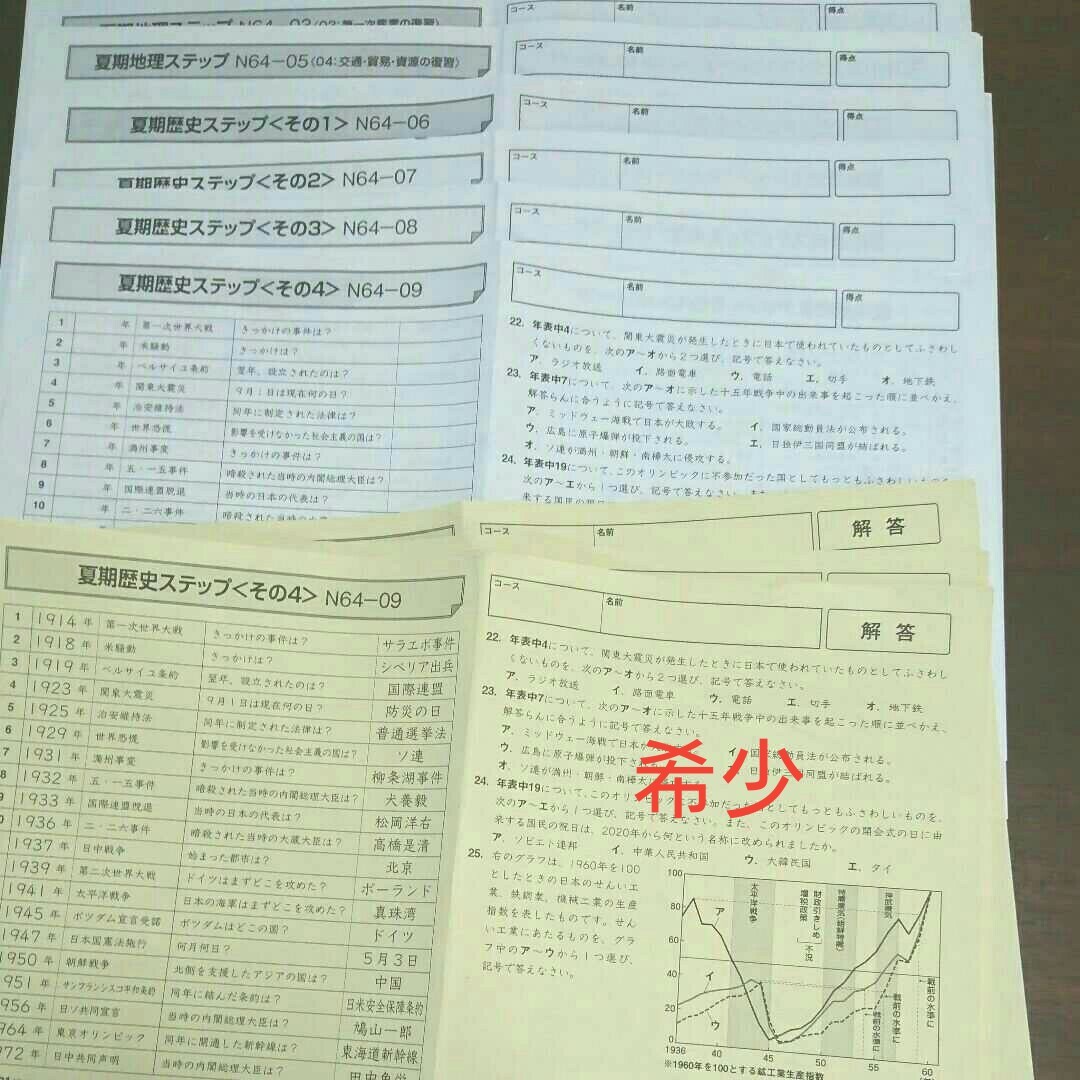 夏期地理ステップ N64-03(03:第一次産業の復習)
コース 名前 得点
夏期地理ステップ N64-05(04:交通・貿易・資源の復習)
コース 名前 得点
夏期歴史ステップ<その1> N64-06
コース 名前 得点
夏期歴史ステップ<その2> N64-07
コース 名前 得点
夏期歴史ステップ<その3> N64-08
コース 名前 得点
夏期歴史ステップ<その4> N64-09
コース 名前 得点
1 年 第一次世界大戦 きっかけの事件は?
2 年 米騒動 きっかけは?
3 年 ベルサイユ条約 翌年、設立されたのは?
4 年 関東大震災 9月1日は現在何の日?
5 年 治安維持法 同年に制定された法律は?
6 年 世界恐慌 影響を受けなかった社会主義の国は?
7 年 満州事変 きっかけの事件は?
8 年 五・一五事件 暗殺された当時の内閣総理大臣は?
9 年 国際連盟脱退 当時の日本の代表は?
10 年 二・二六事件 暗殺された当時の大蔵大臣は?
22. 年表中4について、関東大震災が発生したときに日本で使われていたものとしてふさわし
くないものを、次のア~オから2つ選び、記号で答えなさい。
ア. ラジオ放送 イ. 路面電車 ウ. 電話 エ. 切手 オ. 地下鉄
23. 年表中7について、次のア~オに示した十五年戦争中の出来事を起こった順に並べかえ、
解答らんに合うように記号で答えなさい。
ア. ミッドウェー海戦で日本が大敗する。 イ. 国家総動員法が公布される。
ウ. 広島に原子爆弾が投下される。 エ. 日独伊三国同盟が結ばれる。
オ. ソ連が満州・朝鮮・南樺太に侵攻する。
24. 年表中19について、このオリンピックに不参加だった国としてもっともふさわしいものを、
次のア~エから1つ選び、記号で答えなさい。また
来する国民の祝日
コース 名前 解答
夏期歴史ステップ<その4> N64-09
コース 名前 解答
1 1914年 第一次世界大戦 きっかけの事件は? サラエボ事件
2 1918年 米騒動 きっかけは? シベリア出兵
3 1919年 ベルサイユ条約 翌年、設立されたのは? 国際連盟
4 1923年 関東大震災 9月1日は現在何の日? 防災の日
5 1925年 治安維持法 同年に制定された法律は? 普通選挙法
6 1929年 世界恐慌 影響を受けなかった社会主義の国は? ソ連
7 1931年 満州事変 きっかけの事件は? 柳条湖事件
8 1932年 五・一五事件 暗殺された当時の内閣総理大臣は? 犬養毅
9 1933年 国際連盟脱退 当時の日本の代表は? 松岡洋右
0 1936年 二・二六事件 暗殺された当時の大蔵大臣は? 高橋是清
1937年 日中戦争 始まった都市は? 北京
1939年 第二次世界大戦 ドイツはまずどこを攻めた? ポーランド
1941年 太平洋戦争 日本の海軍はまずどこを攻めた? 真珠湾
1945年 ポツダム宣言受諾 ポツダムはどこの国? ドイツ
1947年 日本国憲法施行 何月何日? 5月3日
1950年 朝鮮戦争 北側を支援したアジアの国は? 中国
951年 サンフランシスコ平和条約 同年に結んだ条約は? 日米安全保障条約
956年 日ソ共同宣言 当時の内閣総理大臣は? 鳩山一郎
964年 東京オリンピック 同年に開通した新幹線は? 東海道新幹線
972年 日中共同声明 当時の内閣総理大臣は? 田中角栄
22. 年表中4について、関東大震災が発生したときに日本で使われていたものとしてふさわし
くないものを、次のア~オから2つ選び、記号で答えなさい。
ア. ラジオ放送 イ. 路面電車 ウ. 電話 エ. 切手 オ. 地下鉄
23. 年表中7について、次のア~オに示した十五年戦争中の出来事を起こった順に並べかえ、
解答らんに合うように記号で答えなさい。
ア. ミッドウェー海戦で日本が イ. 国家総動員法が公布される。
ウ. 広島に原子爆弾が投下され 日独伊三国同盟が結ばれる。
オ. ソ連が満州・朝鮮・南樺太に
希少
24. 年表中19について、このオリンピックに不参加だった国としてもっともふさわしいものを、
次のア~エから1つ選び、記号で答えなさい。また、このオリンピックの開会式の日に由
来する国民の祝日は、2020年から何という名称に改められましたか。
ア. ソビエト連邦 イ. 中華人民共和国 ウ. 大韓民国 エ. タイ
25. 右のグラフは、1960年を100
としたときの日本のせんい工
業、鉄鋼業、機械工業の生産
指数を表したものです。せん
い工業にあたるものを、グラ
フ中のア~ウから1つ選び、
記号で答えなさい。
100
80
60
40
20
0
太平洋戦争
財政引きしめ 増税政策
不況
特需景気(朝鮮特需)
神武景気
ア
イ
ウ
戦前の水準に
戦前の水準に
戦前の水準に
1936 40 45 50 55 60
※1960年を100とする鉱工業生産指数